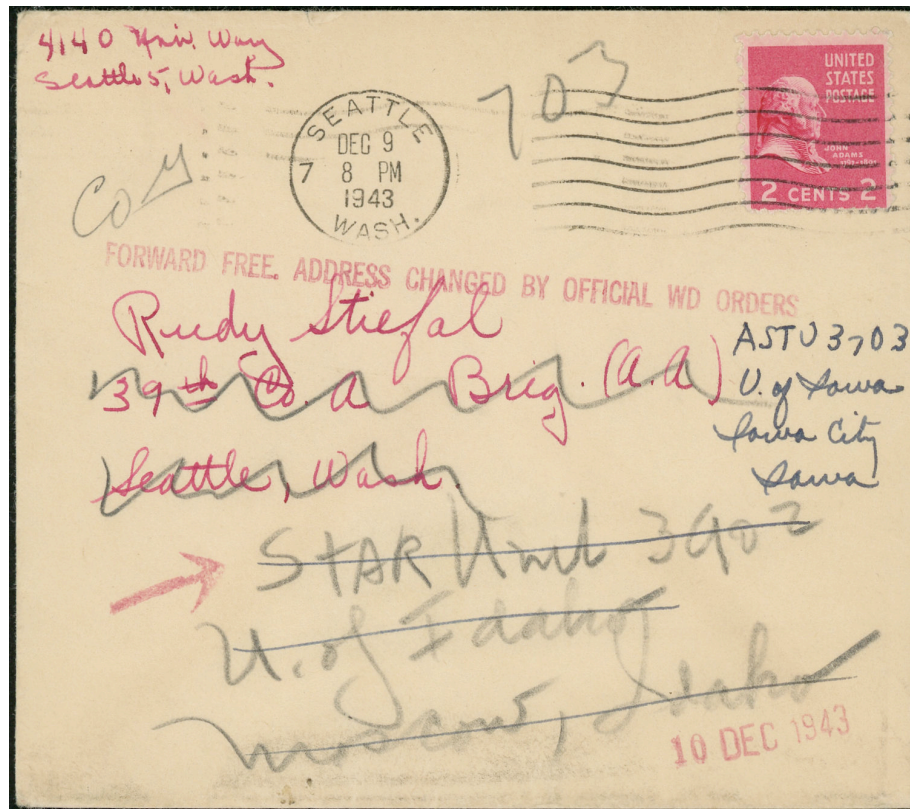 4140 Univ. Way
Seattle 5, Wash.
703
SEATTLE
DEC 9
7 8 PM
1943
WASH.
UNITED
STATES
POSTAGE
JOHN
ADAMS
2 CENTS 2
Co
FORWARD FREE. ADDRESS CHANGED BY OFFICIAL WD ORDERS
Rudy Stiefal
39th Co. A Brig. (A.A)
Seattle, Wash.
ASTU 3703
U. of Iowa
Iowa City
Iowa
STAR Unit 3902
U. of Idaho
Moscow, Idaho
10 DEC 1943